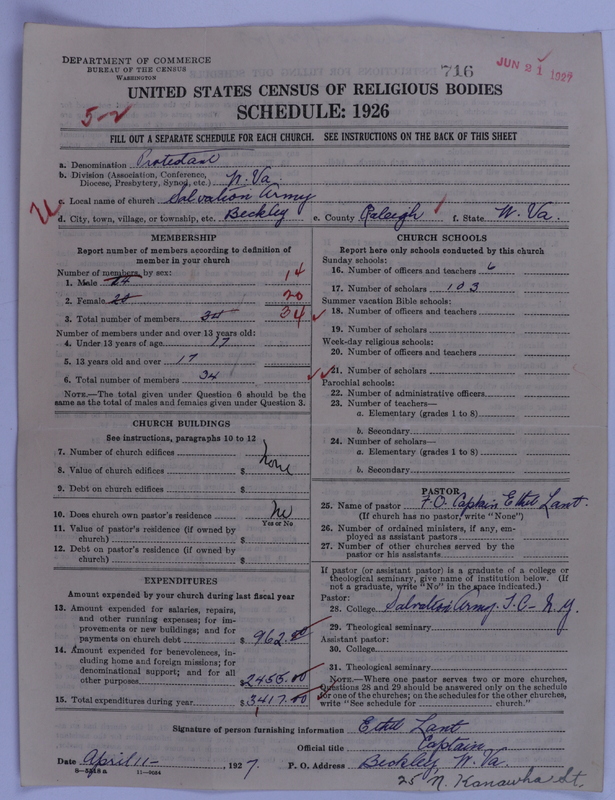 DEPARTMENT OF COMMERCE
BUREAU OF THE CENSUS
WASHINGTON
716
JUN 21 1927
UNITED STATES CENSUS OF RELIGIOUS BODIES
SCHEDULE: 1926
5-2
FILL OUT A SEPARATE SCHEDULE FOR EACH CHURCH. SEE INSTRUCTIONS ON THE BACK OF THIS SHEET
a. Denomination Protestant
b. Division (Association, Conference, Diocese, Presbytery, Synod, etc.) W. Va.
c. Local name of church Salvation Army
d. City, town, village, or township, etc. Beckley e. County Raleigh f. State W. Va.
MEMBERSHIP
Report number of members according to definition of
member in your church
Number of members, by sex:
1. Male 14 14
2. Female 20 20
3. Total number of members 34 34
Number of members under and over 13 years old:
4. Under 13 years of age 17
5. 13 years old and over 17
6. Total number of members 34
NOTE.—The total given under Question 6 should be
same as the total of males and females given under Question 3.
CHURCH BUILDINGS
See instructions, paragraphs 10 to 12
7. Number of church edifices
none
8. Value of church edifices $
9. Debt on church edifices $
10. Does church own pastor's residence no
Yes or No
11. Value of pastor's residence (if owned by
church) $
12. Debt on pastor's residence (if owned by
church) $
EXPENDITURES
Amount expended by your church during last fiscal year
13. Amount expended for salaries, repairs,
and other running expenses; for im-
provements or new buildings; and for
payments on church debt $ 962.00
14. Amount expended for benevolences, in-
cluding home and foreign missions; for
denominational support; and for all
other purposes $ 2455.00
15. Total expenditures during year $ 3417.00
CHURCH SCHOOLS
Report here only schools conducted by this church
Sunday schools:
16. Number of officers and teachers 6
17. Number of scholars 103
Summer vacation Bible schools:
18. Number of officers and teachers
19. Number of scholars
Week-day religious schools:
20. Number of officers and teachers
21. Number of scholars
Parochial schools:
22. Number of administrative officers
23. Number of teachers—
a. Elementary (grades 1 to 8)
b. Secondary
24. Number of scholars—
a. Elementary (grades 1 to 8)
b. Secondary
PASTOR
25. Name of pastor F.O. Captain Ethel Lant.
(If church has no pastor, write "None")
26. Number of ordained ministers, if any, em-
ployed as assistant pastors
27. Number of other churches served by the
pastor or his assistants
If pastor (or assistant pastor) is a graduate of a college or
theological seminary, give name of institution below. (If
not a graduate, write "No" in the space indicated.)
Pastor:
28. College Salvation Army. T.C- N.Y.
29. Theological seminary
Assistant pastor:
30. College
31. Theological seminary
NOTE.—Where one pastor serves two or more churches,
Questions 28 and 29 should be answered only on the schedule
for one of the churches; on the schedules for the other churches,
write "See schedule for church."
Signature of person furnishing information Ethel Lant
Official title Captain
Date April 11-, 1927. P. O. Address Beckley, W. Va.
25 N. Kanawha St.
8-5A18a 11-9024